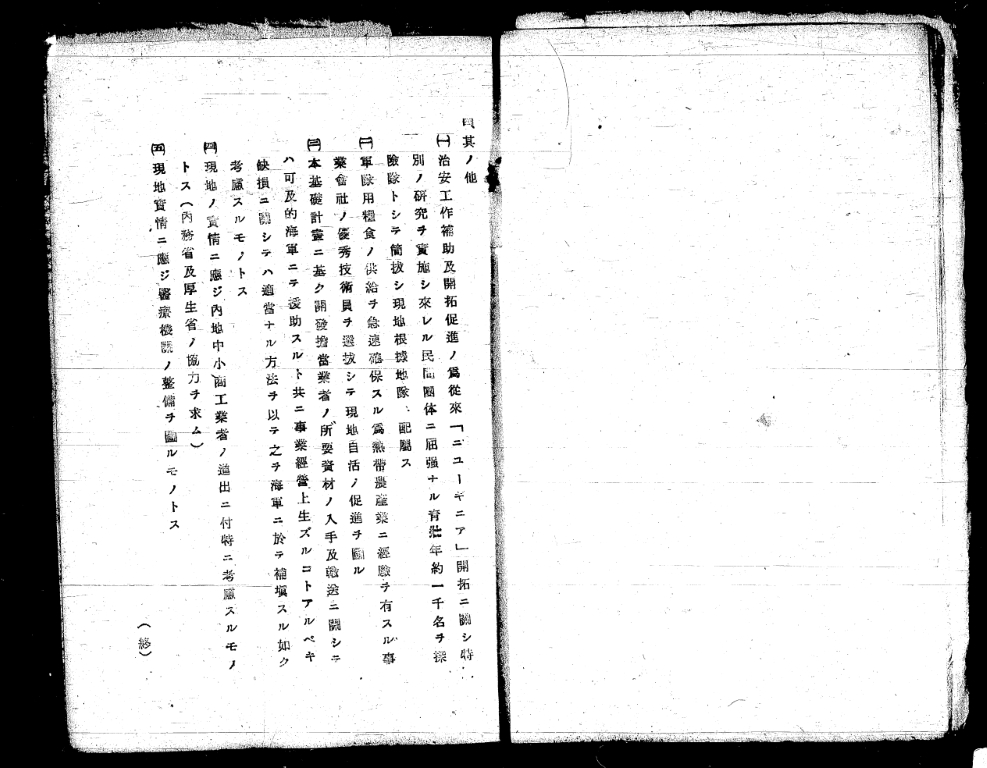 四、其ノ他
㈠治安工作補助及開拓促進ノ爲從來「ニユーギニア」開拓ニ關シ特
別ノ硏究ヲ實施シ來レル民間團体ニ屈强ナル靑壯年約一千名ヲ探
險隊トシテ簡拔シ現地根據地隊ニ配屬ス
㈡軍隊用糧食ノ供給ヲ急速確保スル爲熱帶農產業ニ經驗ヲ有スル事
業會社ノ優秀技術員ヲ選拔シテ現地自活ノ促進ヲ圖ル
㈢本基礎計畫ニ基ク開發擔當業者ノ所要資材ノ入手及輸送ニ關シテ
ハ可及的海軍ニテ援助スルト共ニ事業經營上生ズルコトアルベキ
缺損ニ關シテハ適當ナル方法ヲ以テ之ヲ海軍ニ於テ補塡スル如ク
考慮スルモノトス
㈣現地ノ實情ニ應ジ內地中小商工業者ノ進出ニ付特ニ考慮スルモノ
トス(內務省及厚生省ノ協力ヲ求ム)
㈤現地實情ニ應ジ醫療機關ノ整備ヲ圖ルモノトス
(終)